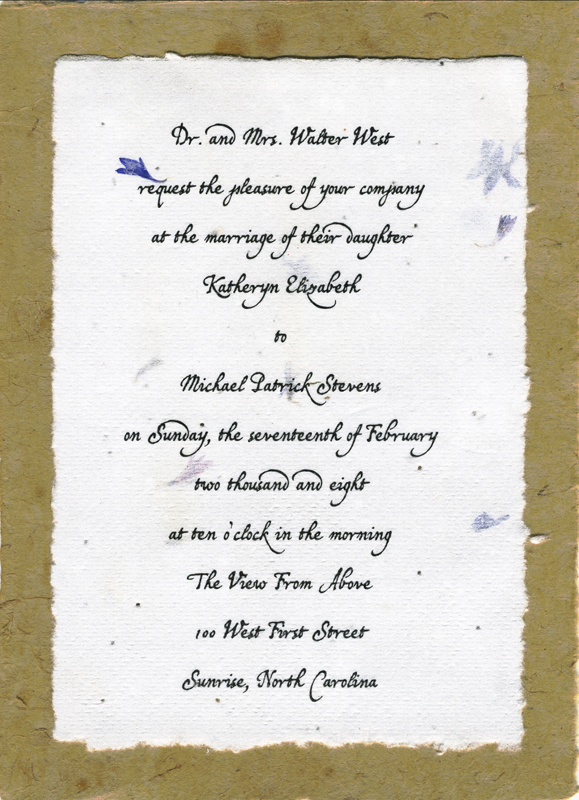 Dr. and Mrs. Walter West
request the pleasure of your company
at the marriage of their daughter
Katheryn Elizabeth
to
Michael Patrick Stevens
on Sunday, the seventeenth of February
two thousand and eight
at ten o'clock in the morning
The View From Above
100 West First Street
Sunrise, North Carolina